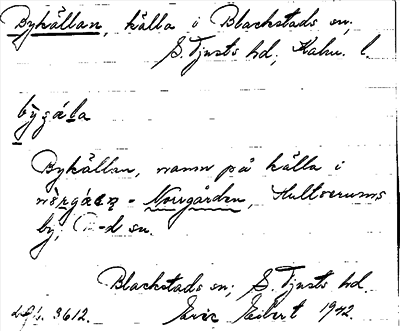 Bykällan, källa i Blackstads sn;
S. Tjusts hd, Kalm. l.
bỳgá̱la
Bykällan, namn på källa i
Norrgården, Hultserums
by, B-d sn.
Blackstads sn; S. Tjusts hd.
3612. Eric Eibert 1942.